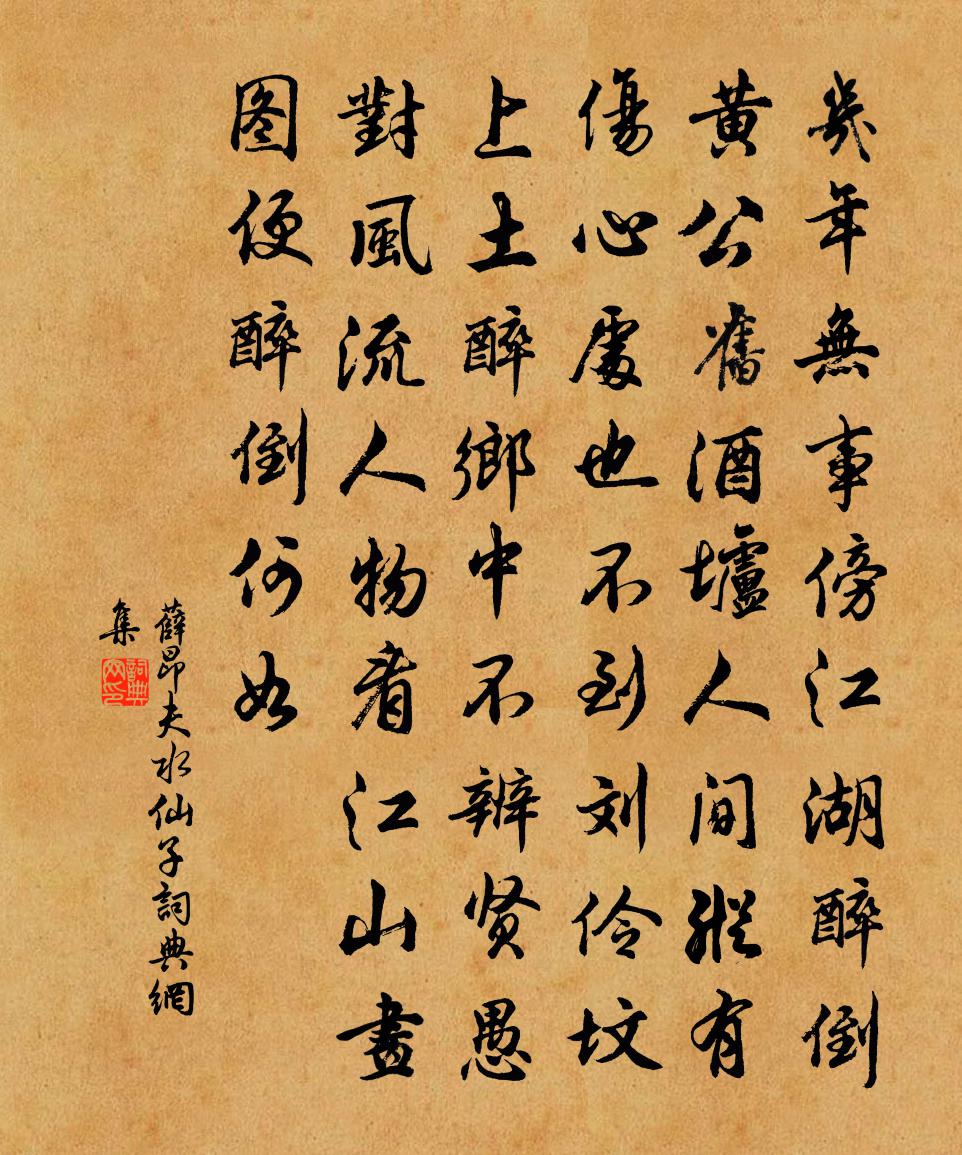 幾年無事傍江湖醉倒
黄公舊酒壚人間縱有
傷心處也不到刘伶坟
上土醉鄉中不辨贤愚
對風流人物看江山畫
图便醉倒何如
薛昂夫水仙子詞典網
集
詞典网印